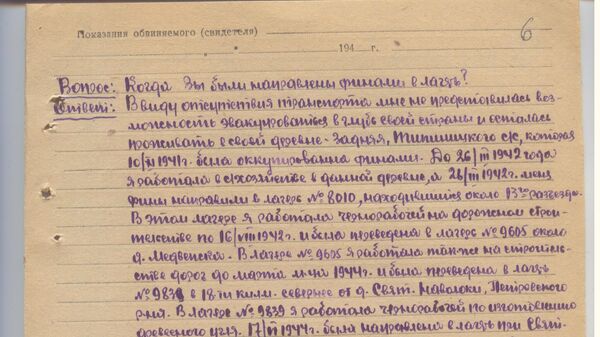 6
Показания обвиняемого (свидетеля)
194 г.
Вопрос: Когда Вы были направлены финами в лагерь?
Ответ: В виду отсутствия транспорта мне не представилась воз-
можность эвакуироваться в глубь своей страны и осталась
проживать в своей деревне - Задняя, Типиницкого с/с, которая
была оккупирована финами. До 26/III 1942 года
я работала в с/хозяйстве в данной деревне, а 26/III 1942 г. меня
фины направили в лагерь № 8010, находившийся около 13го разъезда.
В этом лагере я работала чернорабочей на дорожном строи-
тельстве по 16/VIII 1942 г. и была переведена в лагерь № 9605 около
д. Медвенска. В лагере № 9605 я работала так-же на строитель-
стве дорог до марта м-ца 1944 г. и была переведена в лагерь
№ 9839 в 18ти килм. севернее от д. Свят. Наволоки, Петровского
р-на. В лагере № 9839 я работала чернорабочей по изготовлению
древесного угля. 17/VI 1944 г. была направлена в лагерь при Святн-